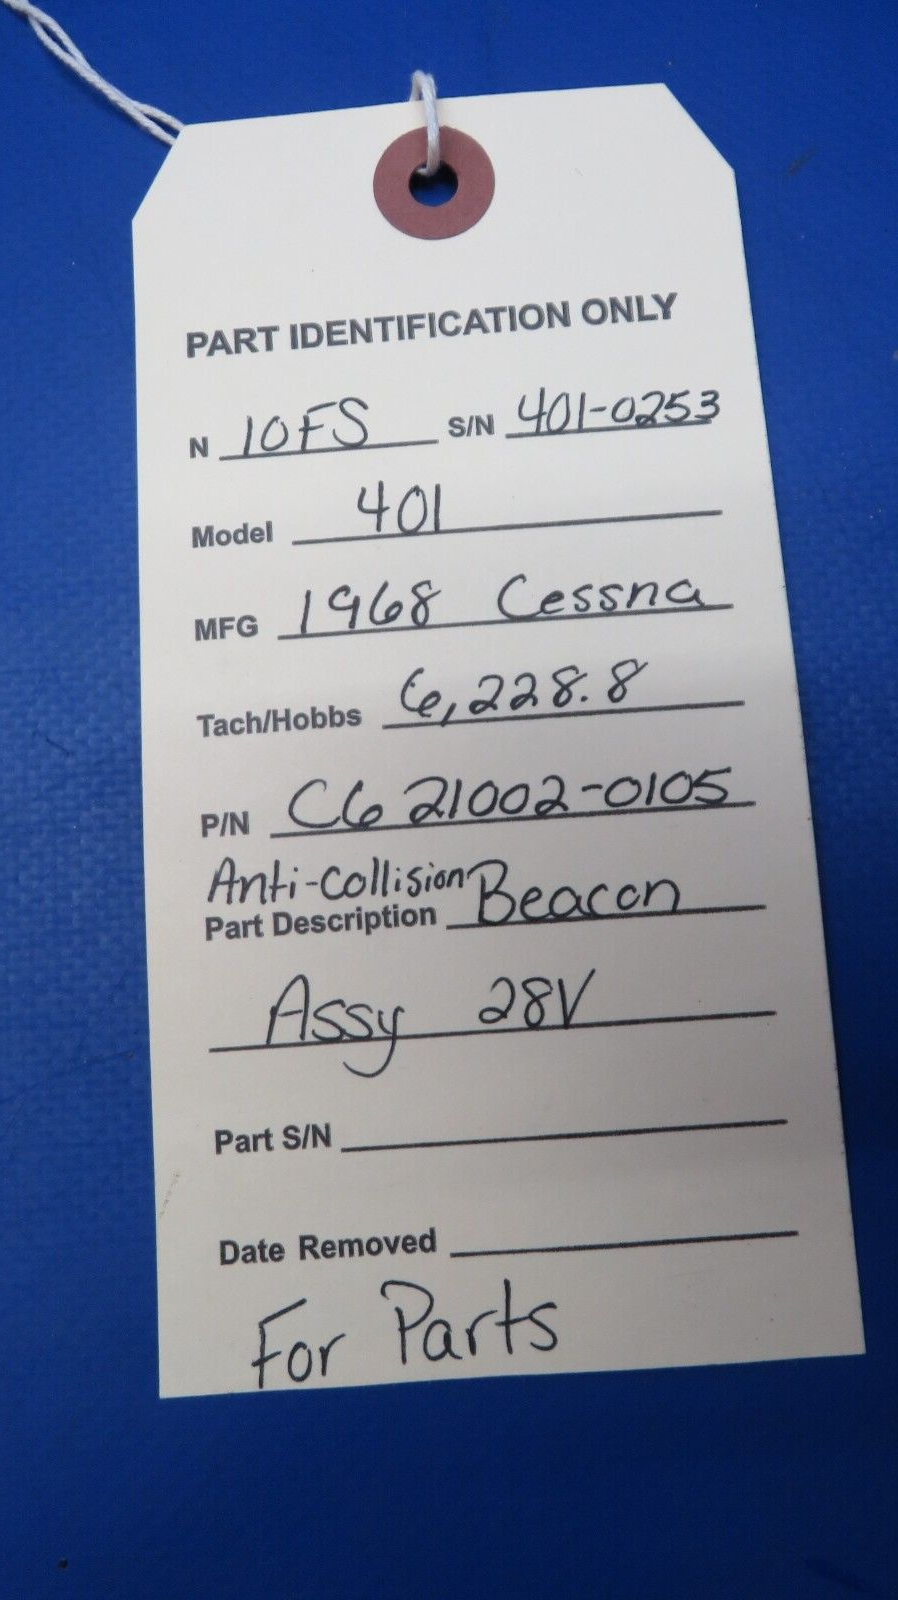 PART IDENTIFICATION ONLY
N 10FS S/N 401-0253
Model 401
MFG 1968 Cessna
Tach/Hobbs 6,228.8
P/N C621002-0105
Anti-Collision
Part Description Beacon
Assy 28V
Part S/N
Date Removed
For Parts